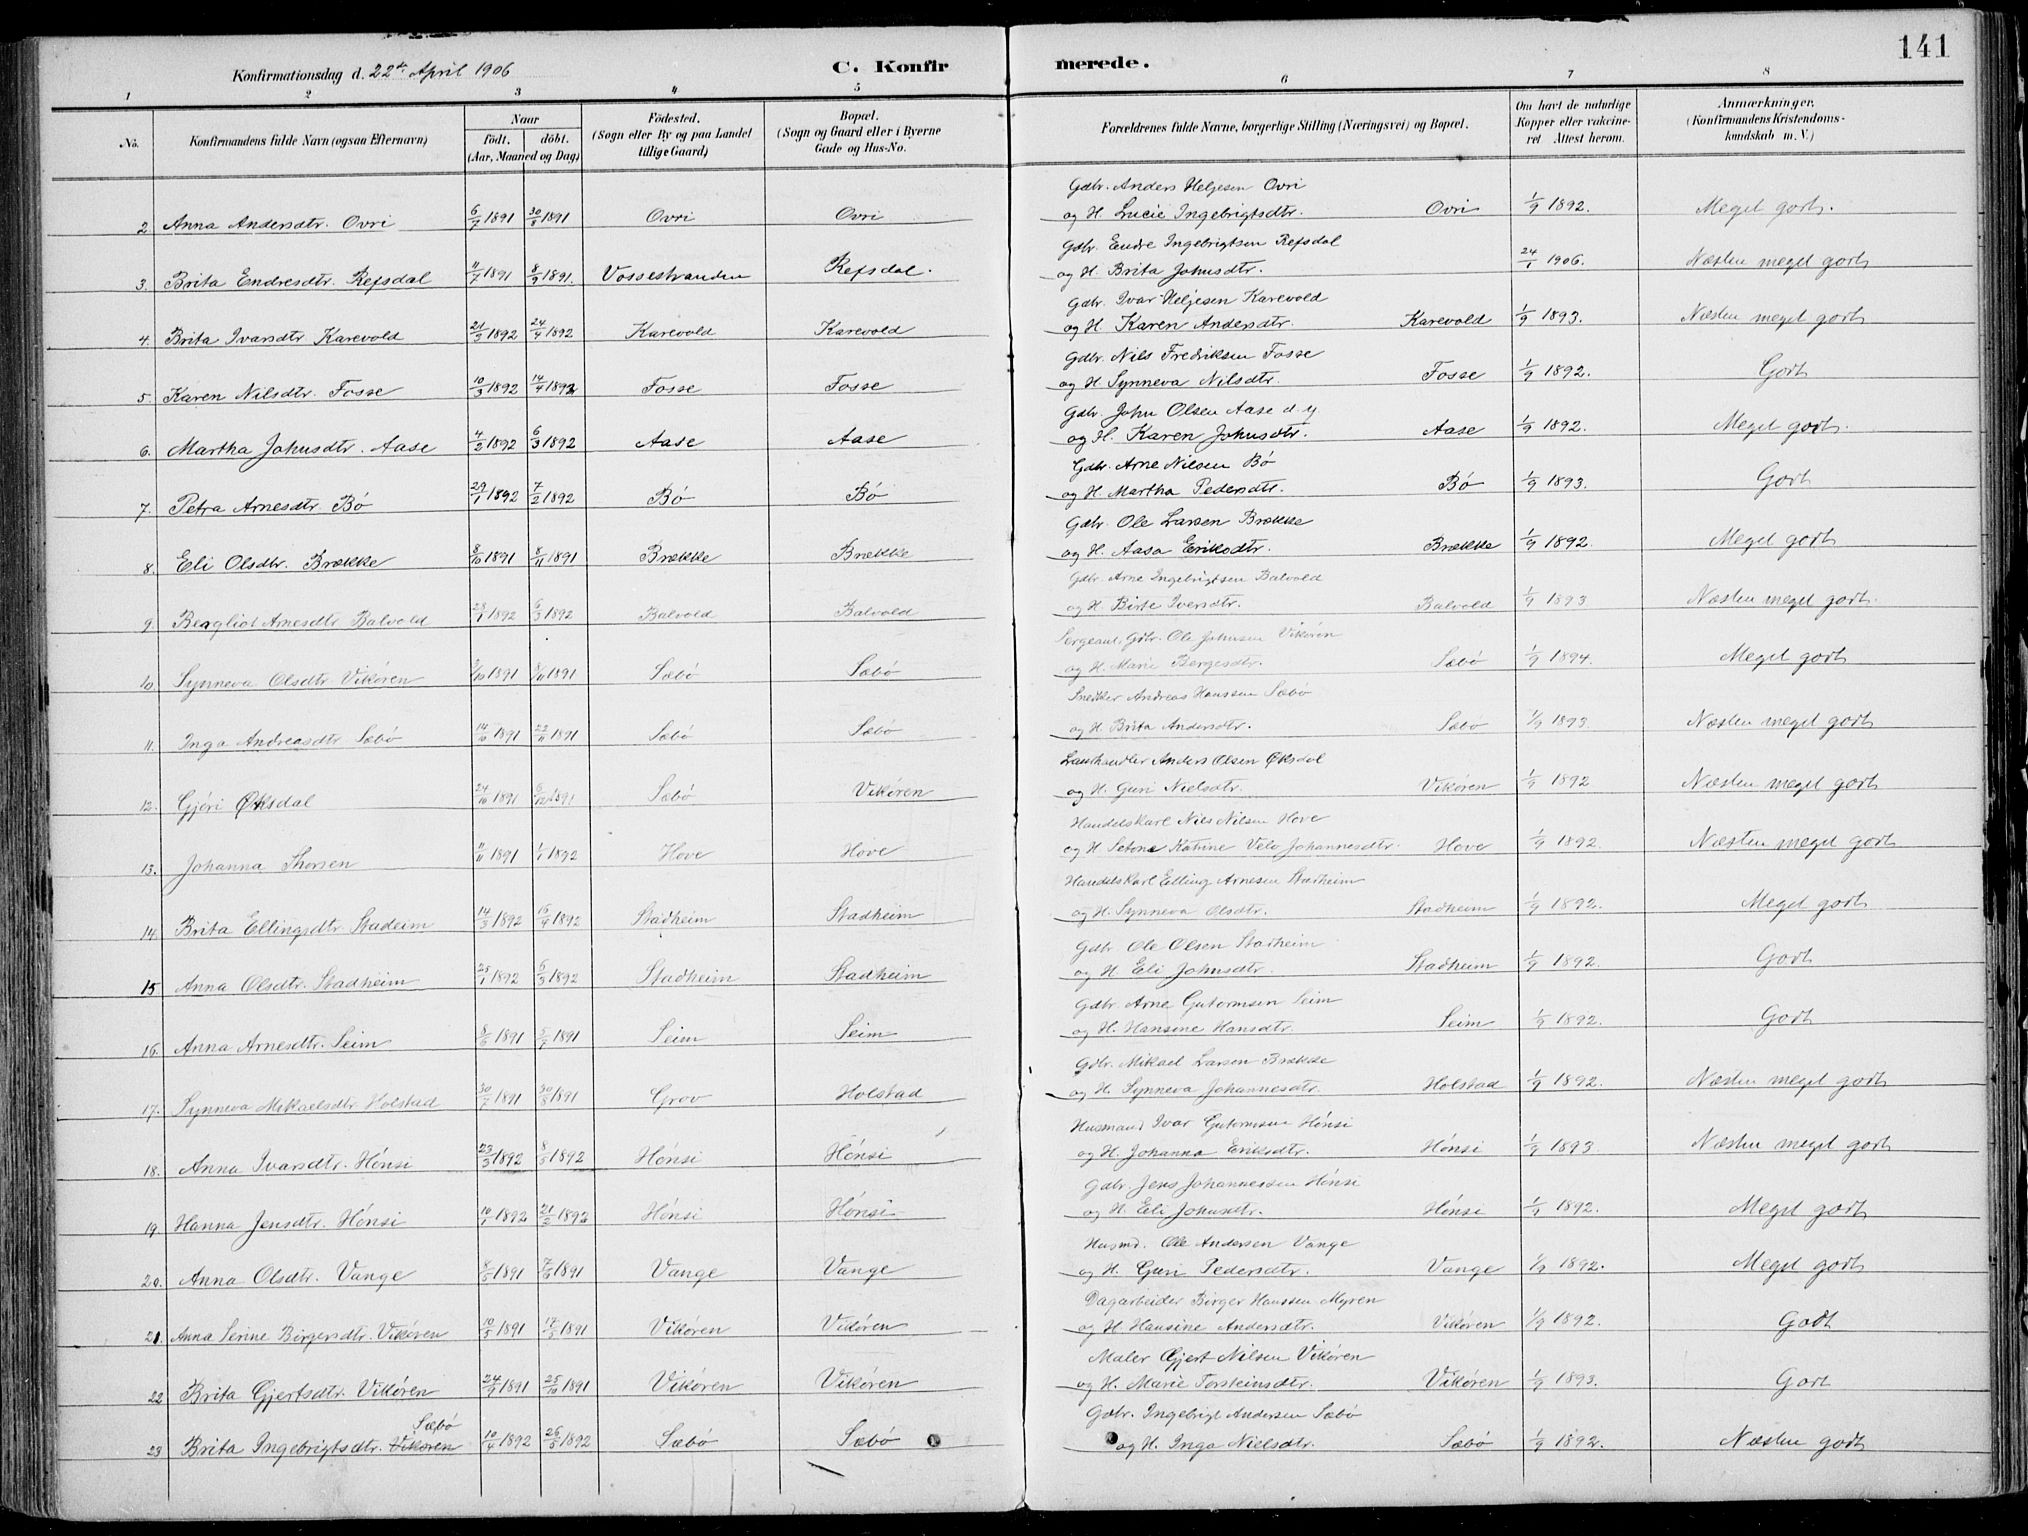 141
Konfirmationsdag d. 22de April 1906
C. Konfirmerede.
1 2 3 4 5 6 7 8
No. Konfirmandens fulde Navn (ogsaa Efternavn) Naar födt. döbt. (Aar, Maaned og Dag) Födested. (Sogn eller By og paa Landet tillige Gaard) Bopæl. (Sogn og Gaard eller i Byerne Gade og Hus-No. Forældrenes fulde Navne, borgerlige Stilling (Næringsvei) og Bopæl. Om havt de naturlige Kopper eller vakcineret Attest herom. Anmærkninger. (Konfirmandens Kristendomskundskab m. V.)
Gdbr. Anders Heljesen Ovri
2 Anna Andersdtr. Ovri 6/7 1891 30/8 1891 Ovri Ovri og H. Lucie Ingebrigtsdtr. Ovri 1/9 1892. Meget godt.
Gdbr. Endre Ingebrigtsen Refsdal
3. Brita Endresdtr. Refsdal 11/7 1891 8/9 1891. Vossestranden Refsdal. og H. Brita Johnsdtr. 24/1 1906. Næsten meget godt
Gdbr. Ivar Heljesen Karevold
4. Brita Ivarsdtr Karevold 21/3 1892 24/4 1892 Karevold Karevold og H. Karen Andersdtr. Karevold 1/9 1893. Næsten meget godt
Gdbr. Nils Fredriksen Fosse
5. Karen Nilsdtr. Fosse 10/3 1892 14/4 1892 Fosse Fosse og H. Synneva Nilsdtr. Fosse 1/9 1892. Godt
Gdbr. John Olsen Aase d. y
6. Martha Johnsdtr. Aase 4/2 1892 6/3 1892 Aase Aase og H. Karen Johnsdtr. Aase 1/9 1892. Meget godt.
Gdbr. Arne Nilsen Bó
7. Petra Arnesdtr. Bó 29/1 1892 7/2 1892 Bó Bó og H. Martha Pedersdtr. Bó 1/9 1893. Godt
Gdbr. Ole Larsen Brække
8. Eli Olsdtr. Brække 8/10 1891 8/11 1891 Brække Brække og H. Aasa Eriksdtr. Brække 1/9 1892. Meget godt
Gdbr. Arne Ingebrigtsen Balvold
9. Bergliot Arnesdtr Balvold 28/1 1892 6/3 1892 Balvold Balvold og H. Birte Iversdtr. Balvold 1/9 1893 Næsten meget godt.
Sergeant, Gdbr. Ole Johnsen Vikóren
10. Synneva Olsdtr Vikóren /10 1891 /11 1891 Sæbó Sæbó og H. Marie Bergesdtr. Sæbó 1/9 1894. Meget godt
Snedker Andreas Hanssen Sæbó
11. Inga Andreasdtr Sæbó 14/10 1891 22/11 1891 Sæbó Sæbó og H. Brita Andersdtr. Sæbo 1/9 1893. Næsten meget godt
Landhandler Anders Olsen Øksdal
12. Gjóri Øksdal 24/10 1891 6/12 1891 Sæbó Vikóren og H. Guri Nielsdtr. Vikóren 1/9 1892 Næsten meget godt
Handelskarl Nils Nilsen Hove
13. Johanna Thorsen 11/11 1891 1/1 1892 Hove Hove og H Katrine Johannesdtr. Hove 1/9 1892. Næsten meget godt
Handelskarl Elling Arnesen Stadheim
14. Brita Ellingsdtr Stadeim 14/3 1892 16/4 1892 Stadheim Stadheim og H. Synneva Olsdtr. Stadheim 1/9 1892. Meget godt
Gdbr. Ole Olsen Stadheim
15 Anna Olsdtr. Stadheim 25/1 1892 6/3 1892 Stadheim Stadheim og H. Eli Johnsdtr. Stadheim 1/9 1892. Godt
Gdbr. Arne Gutormsen Seim
16. Anna Arnesdtr. Seim 8/6 1891 5/7 1891 Seim Seim og H. Hansine Hansdtr. Seim 1/9 1892. Godt
Gdbr. Mikael Larsen Brække
17. Synneva Mikaelsdtr Holstad 30/7 1891 30/8 1891 Grov Holstad og H. Synneva Johannesdtr. Holstad 1/9 1892. Næsten meget godt
Husmand Ivar Gutormsen Hónsi
18. Anna Ivarsdtr. Hónsi 23/3 1892 8/5 1892 Hónsi Hónsi og H. Johanna Eriksdtr. Hónsi 1/9 1893 Næsten meget godt
Gdbr. Jens Johannessen Hónsi
19. Hanna Jensdtr. Hónsi 10/1 1892 21/2 1892 Hónsi Hónsi og H. Eli Johnsdtr. Hónsi 1892. Meget godt
Husmd. Ole Andersen Vange
20. Anna Olsdtr. Vange 8/5 1891 7/6 1891 Vange Vange og H. Guri Pedersdtr. Vange 1/9 1892. Meget godt
Dagarbeider Börger Hanssen Myren
21. Anna Serine Börgersdtr. Vikóren 10/5 1891 17/5 1891 Vikóren Vikóren og H. Hansine Andersdtr. Vikóren 1/9 1892. Godt
Maler Gjert Nilsen Vikóren
22 Brita Gjertsdtr. Vikóren 24/9 1891 25/10 1891 Vikóren Vikóren og H. Marie Torsteinsdtr. Vikóren 1/9 1893. Godt
Sæbó Gdbr. Ingebrigt Andersen Sæbó
23 Brita Ingebrigtsdtr. Vikóren 10/4 1892 26/5 1892 Sæbó Sæbó og H. Inga Nielsdtr. Sæbó 1/9 1892. Næsten godt